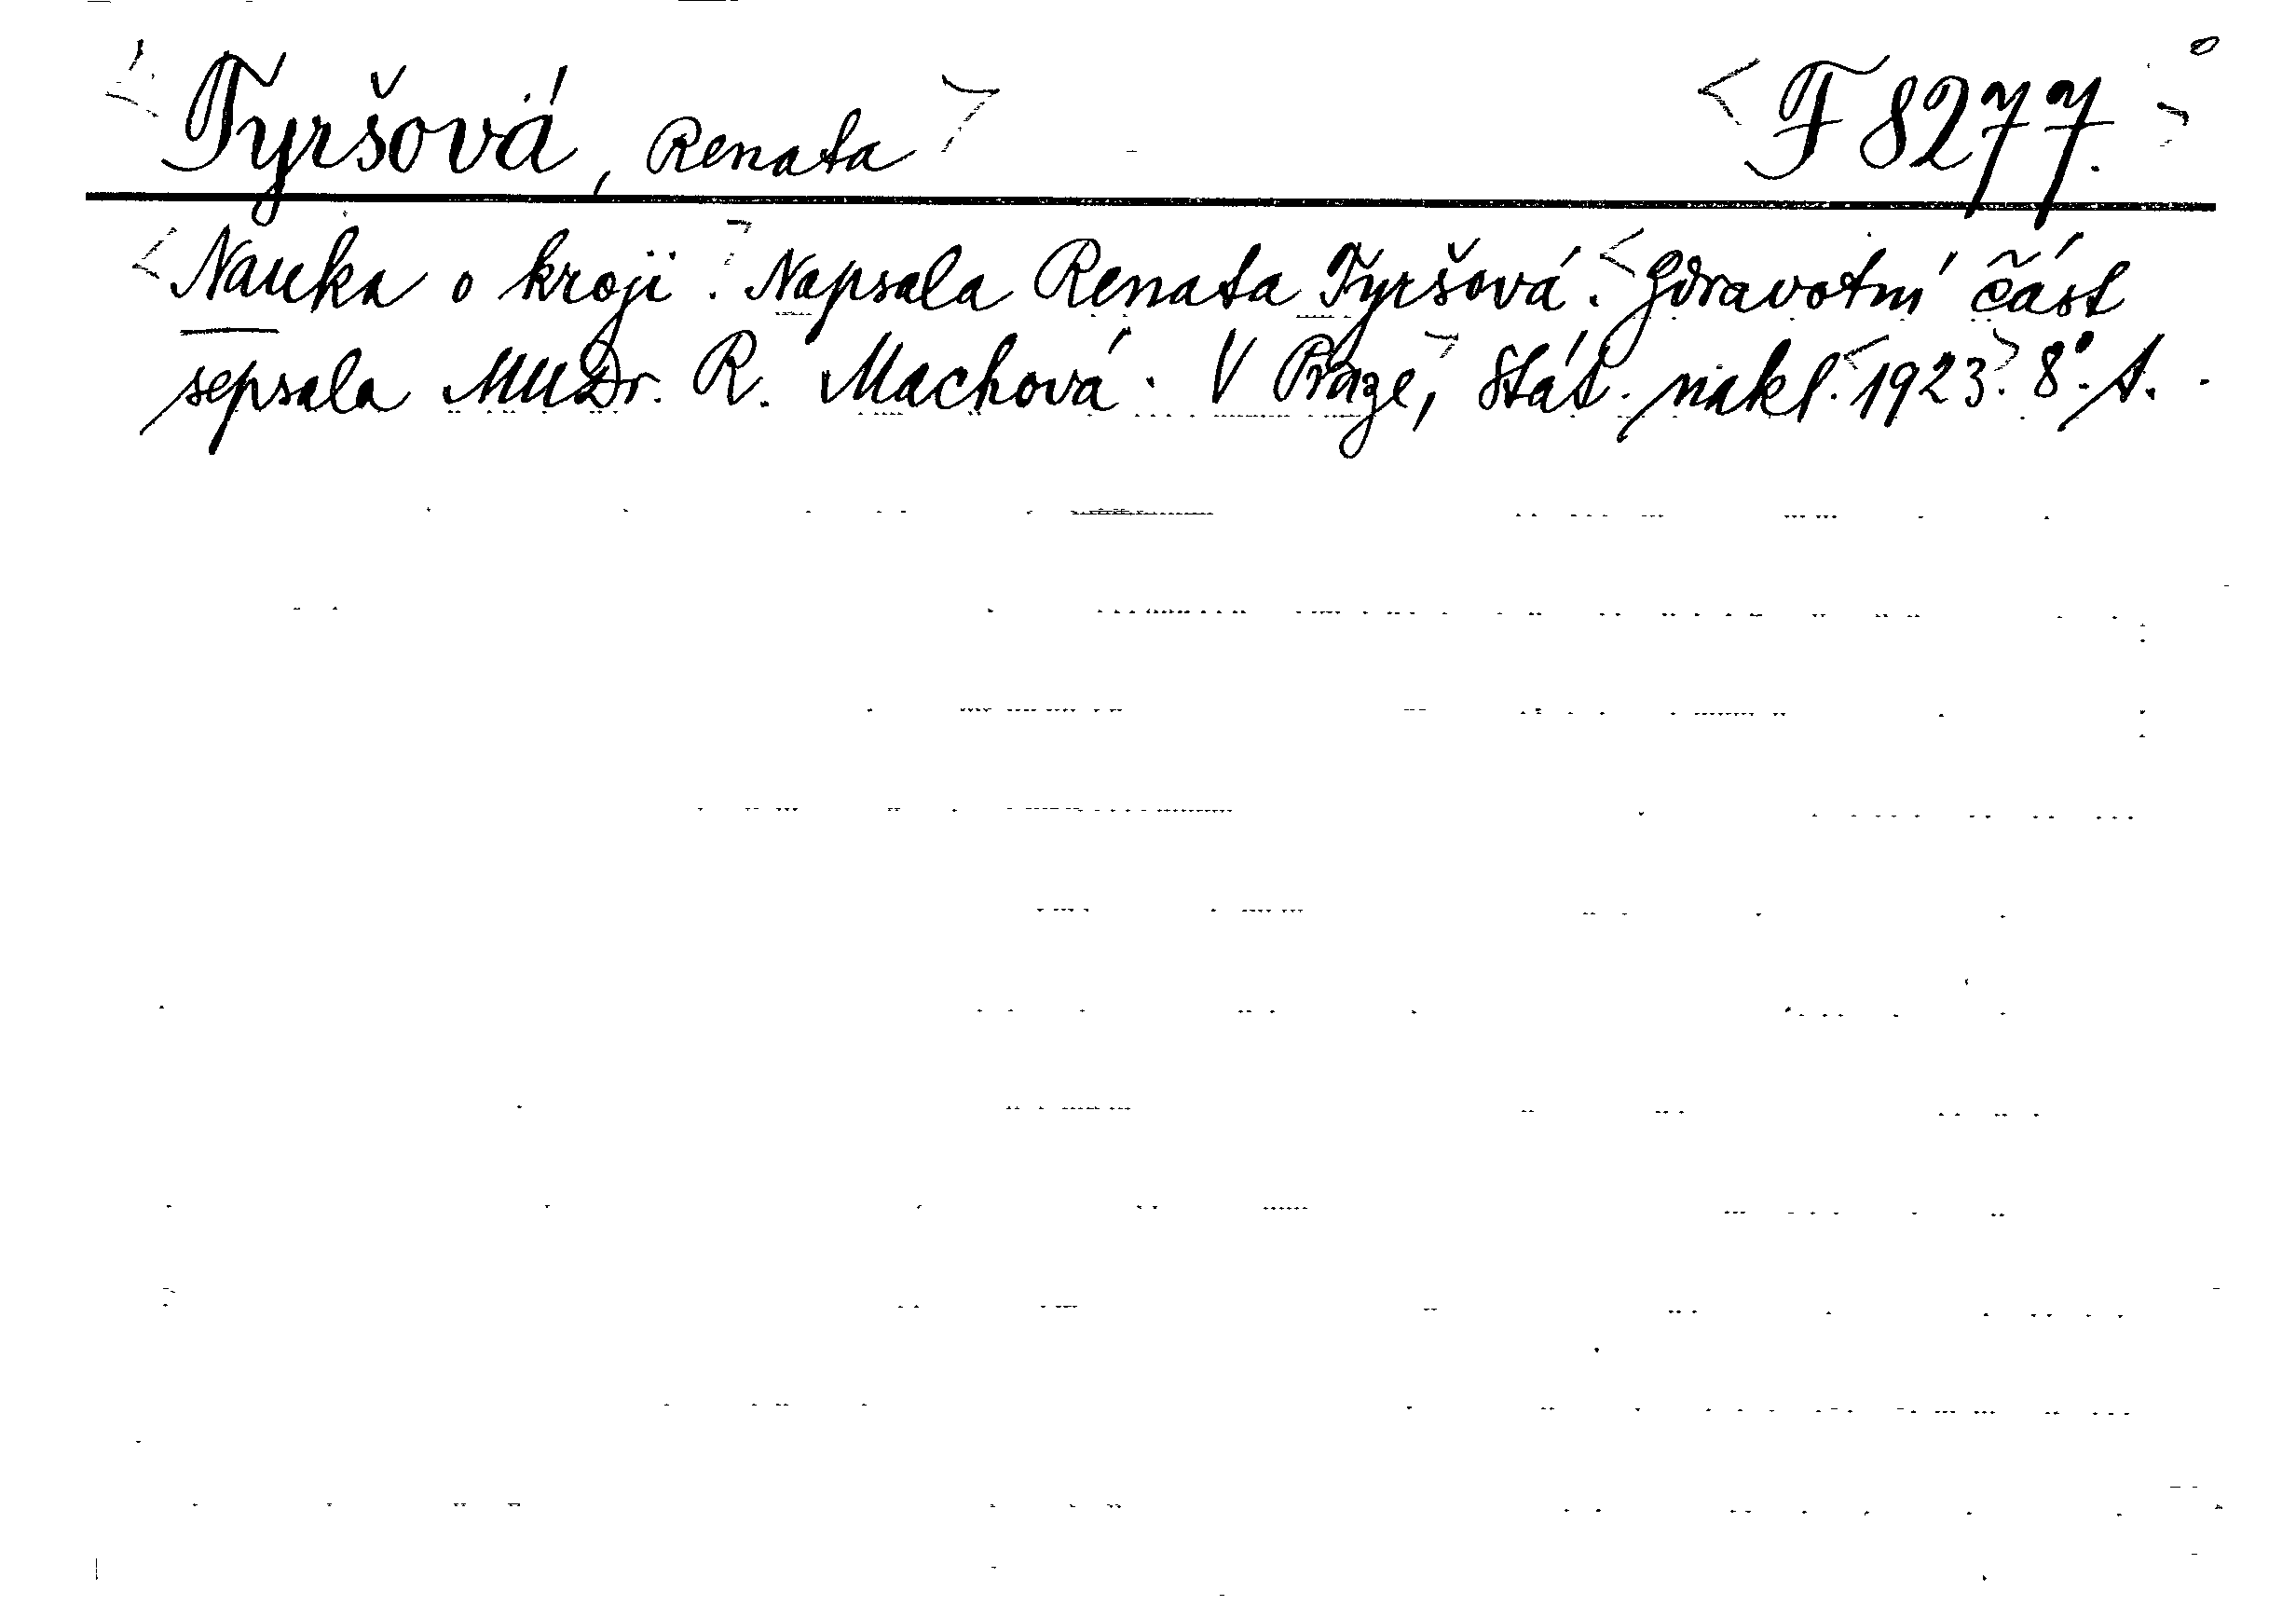 Tyršová, Renata F 8277.
Nauka o kroji. Napsala Renata Tyršová. Zdravotní část
sepsala MUDr. R. Machová. V Praze, Stát. nakl. 1923. 8°. A.